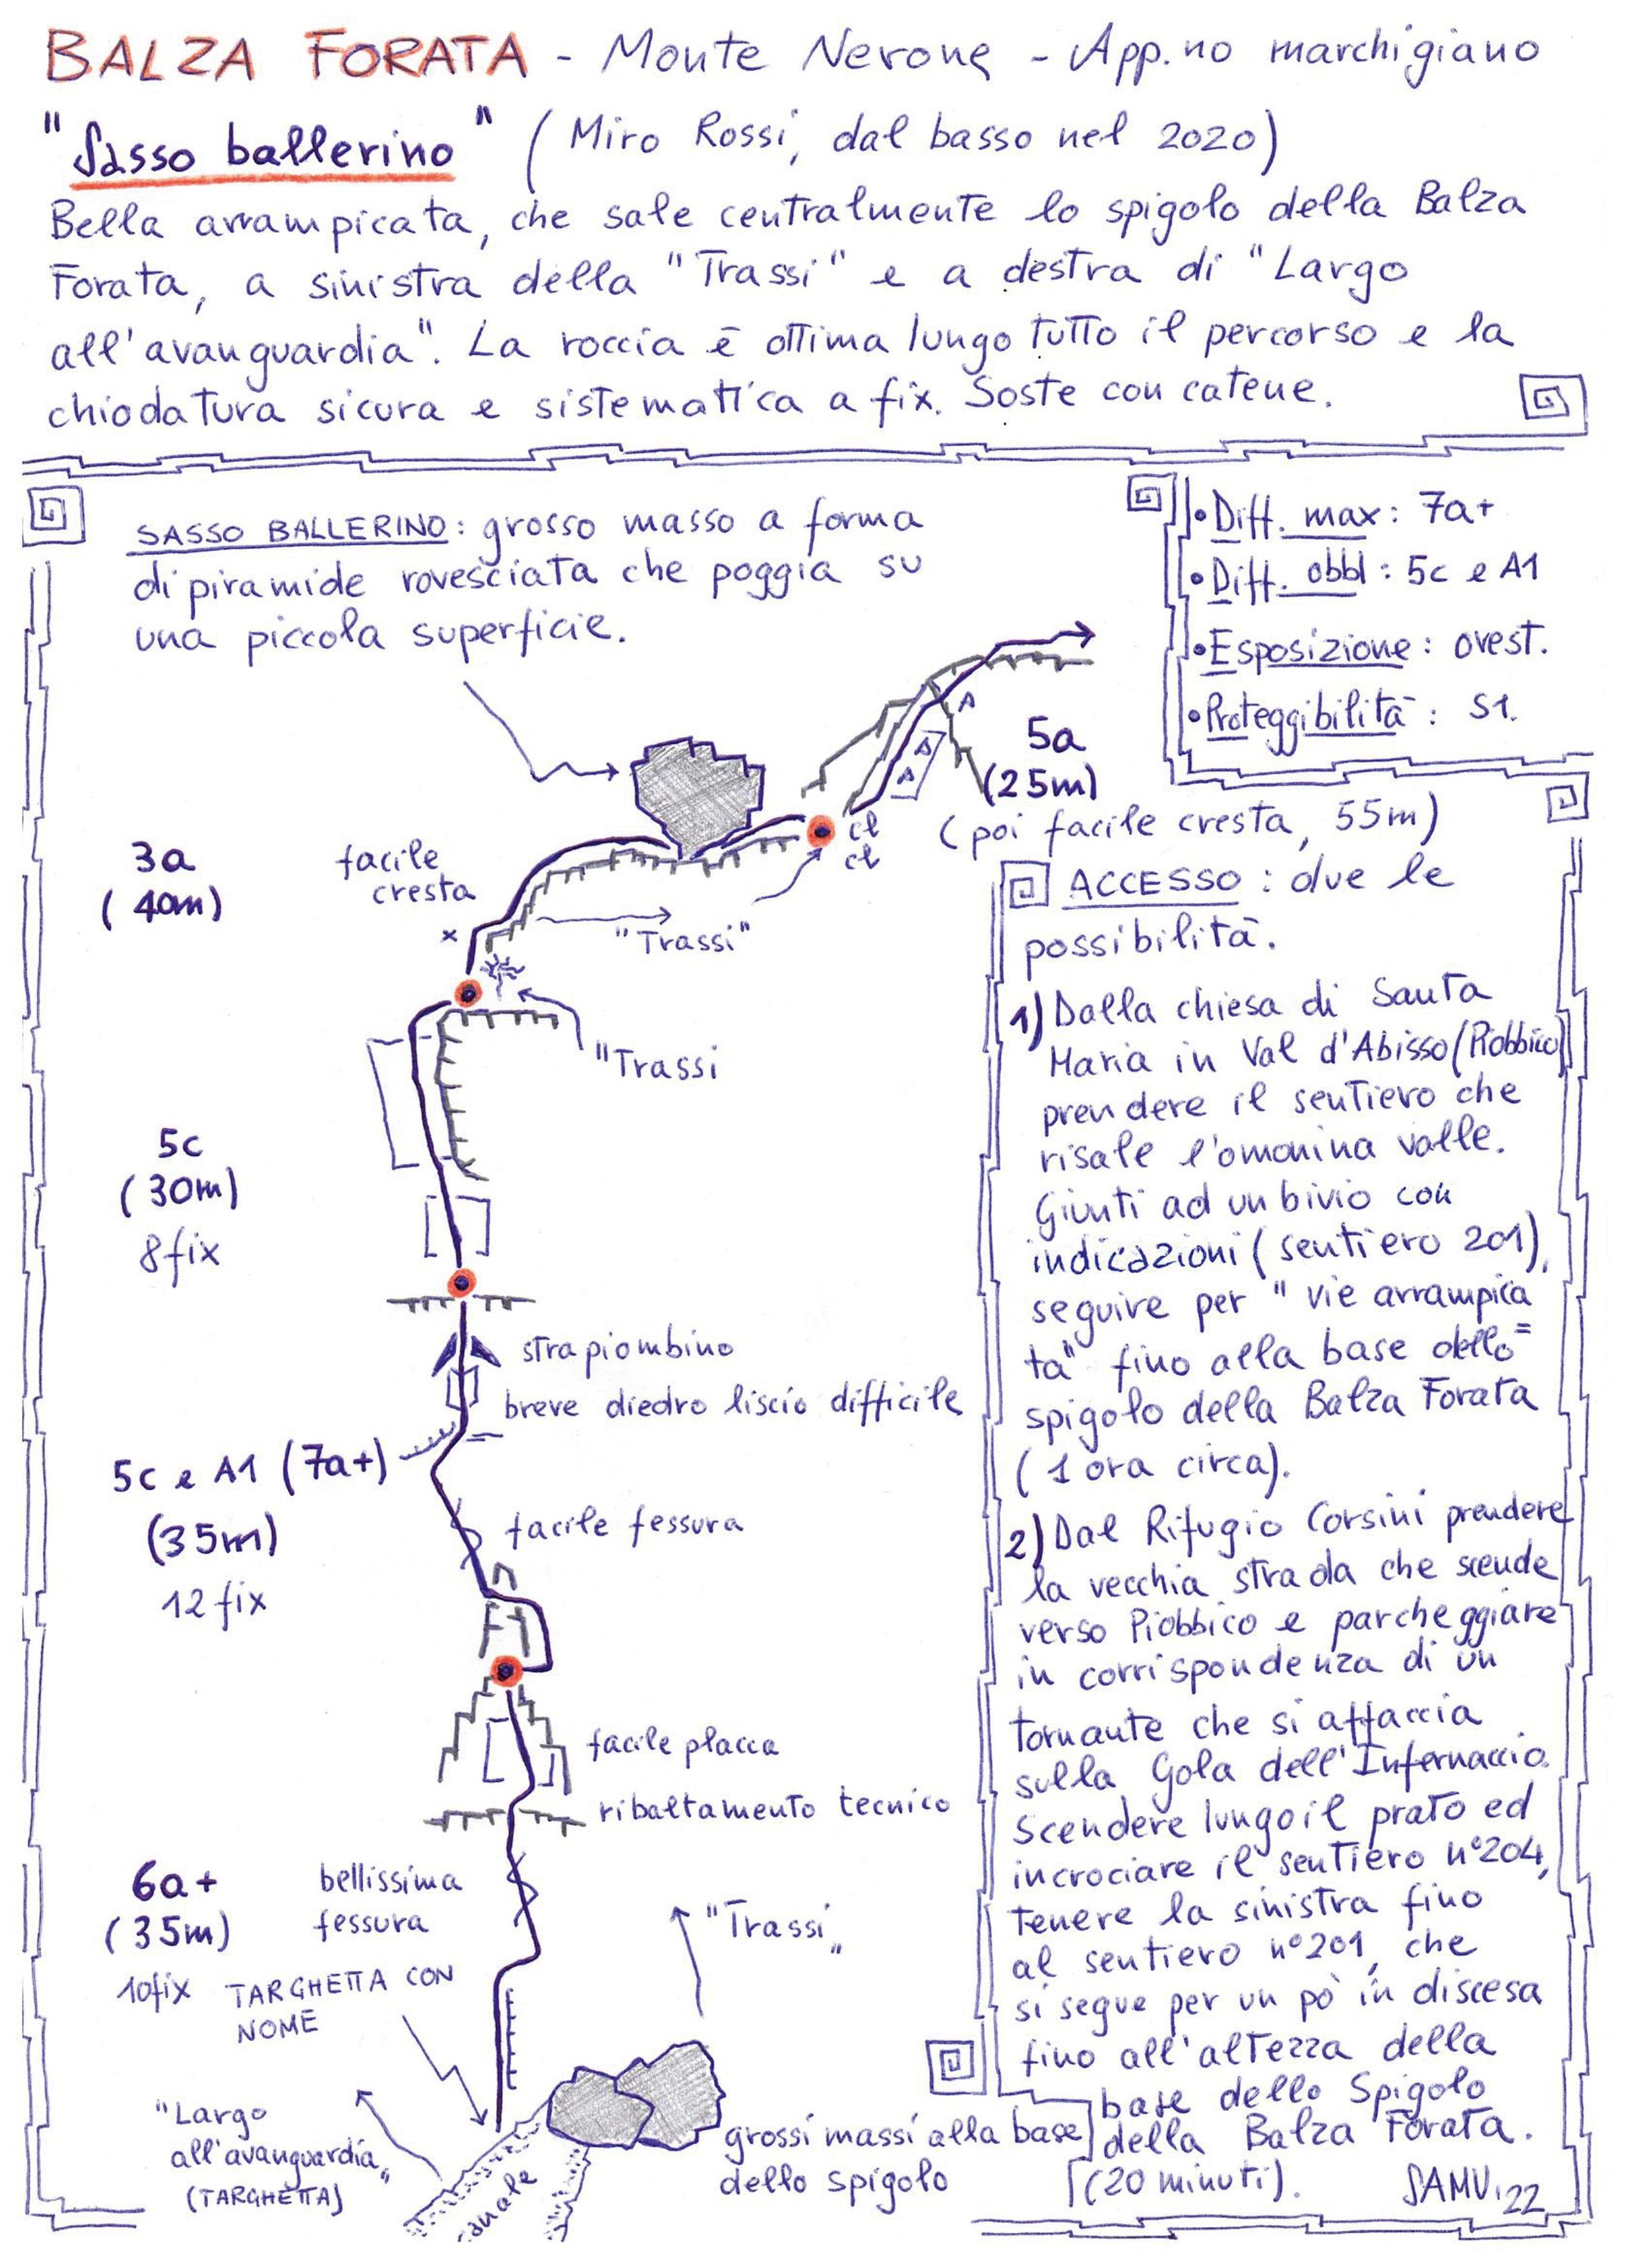 BALZA FORATA - Monte Nerone - App.no marchigiano
"Sasso ballerino" (Miro Rossi, dal basso nel 2020)
Bella arrampicata, che sale centralmente lo spigolo della Balza
Forata, a sinistra della "Trassi" e a destra di "Largo
all'avanguardia". La roccia è ottima lungo tutto il percorso e la
chiodatura sicura e sistematica a fix. Soste con catene.
SASSO BALLERINO: grosso masso a forma
di piramide rovesciata che poggia su
una piccola superficie.
• Diff. max: 7a+
• Diff. obbl: 5c e A1
• Esposizione: ovest.
• Proteggibilità: S1.
5a
(25m)
(poi facile cresta, 55m)
cl
cl
3a
(40m)
facile
cresta
x
"Trassi"
"Trassi
5c
(30m)
8 fix
strapiombino
breve diedro liscio difficile
5c e A1 (7a+)
(35m)
12 fix
facile fessura
facile placca
ribaltamento tecnico
6a+
(35m)
10 fix
bellissima
fessura
"Trassi"
TARGHETTA CON
NOME
"Largo
all'avanguardia"
(TARGHETTA)
canale
grossi massi alla base
dello spigolo
ACCESSO: due le
possibilità.
1) Dalla chiesa di Santa
Maria in Val d'Abisso (Piobbico)
prendere il sentiero che
risale l'omonina valle.
Giunti ad un bivio con
indicazioni (sentiero 201),
seguire per "vie arrampica
ta" fino alla base dello=
spigolo della Balza Forata
(1 ora circa).
2) Dal Rifugio Corsini prendere
la vecchia strada che scende
verso Piobbico e parcheggiare
in corrispondenza di un
tornante che si affaccia
sulla Gola dell'Infernaccio.
Scendere lungo il prato ed
incrociare il sentiero n°204,
tenere la sinistra fino
al sentiero n°201, che
si segue per un pò in discesa
fino all'altezza della
base dello Spigolo
della Balza Forata.
(20 minuti).
SAMU '22